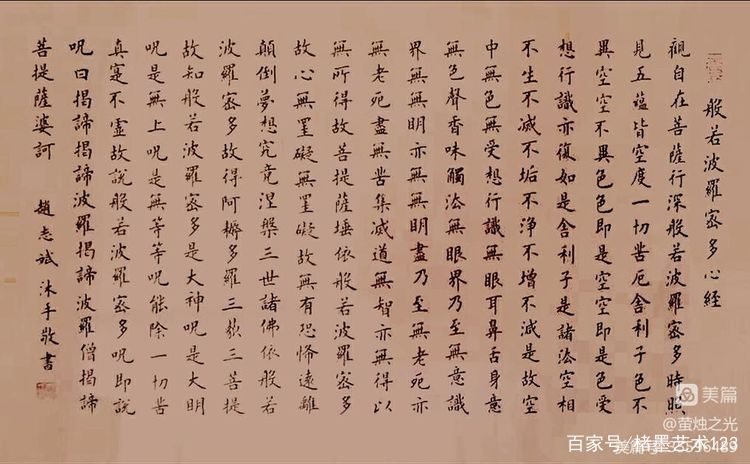 般若波羅蜜多心經
觀自在菩薩行深般若波羅蜜多時照
見五蘊皆空度一切苦厄舍利子色不
異空空不異色色即是空空即是色受
想行識亦復如是舍利子是諸法空相
不生不滅不垢不淨不增不減是故空
中無色無受想行識無眼耳鼻舌身意
無色聲香味觸法無眼界乃至無意識
界無無明亦無無明盡乃至無老死亦
無老死盡無苦集滅道無智亦無得以
無所得故菩提薩埵依般若波羅蜜多
故心無罣礙無罣礙故無有恐怖遠離
顛倒夢想究竟涅槃三世諸佛依般若
波羅蜜多故得阿耨多羅三藐三菩提
故知般若波羅蜜多是大神呪是大明
呪是無上呪是無等等呪能除一切苦
真實不虛故說般若波羅蜜多呪即說
呪曰揭諦揭諦波羅揭諦波羅僧揭諦
菩提薩婆訶 趙志斌 沐手敬書
美篇
@萤烛之光
百家号/楮墨艺术123